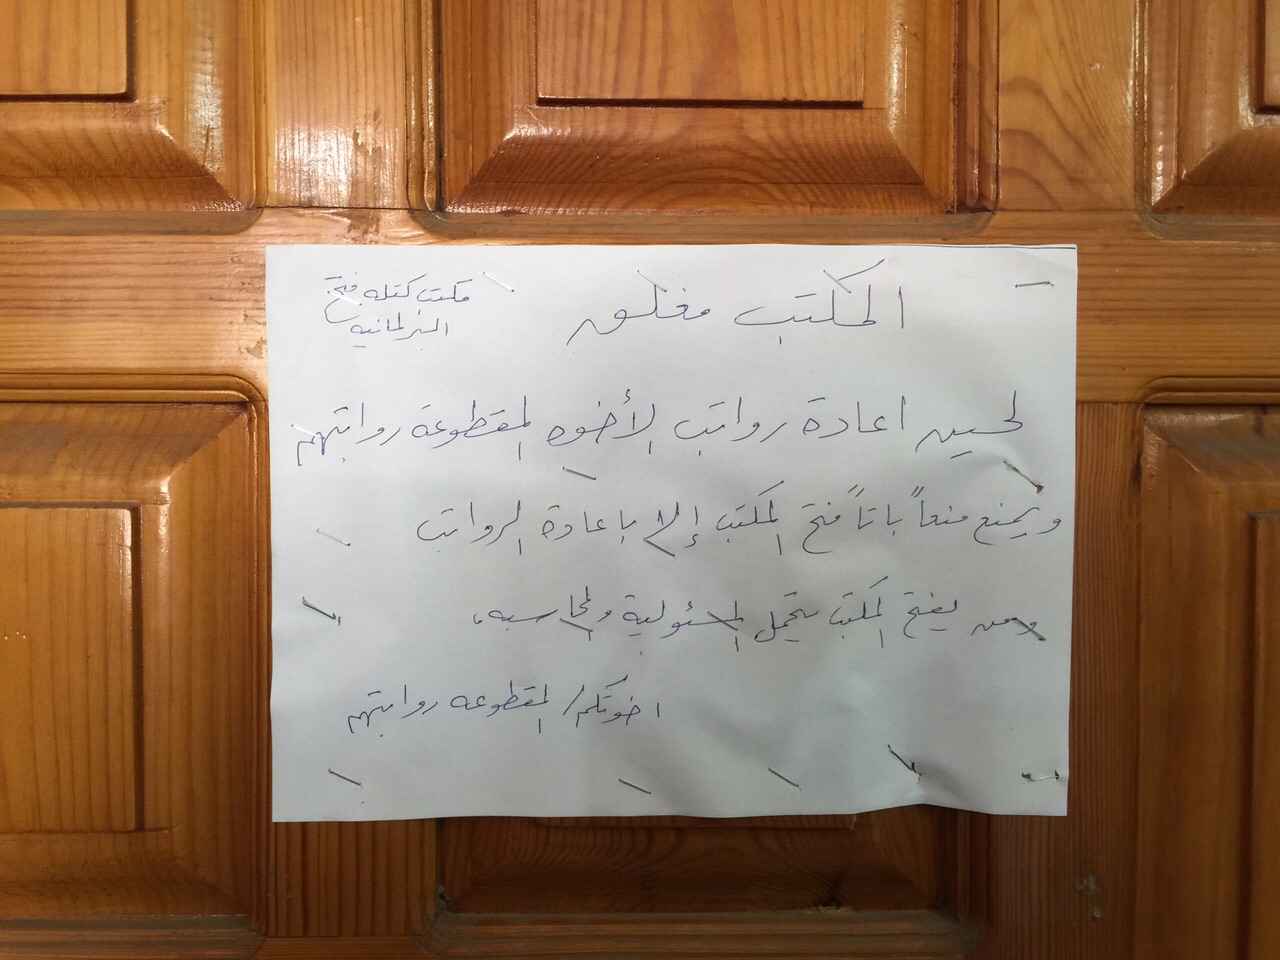 المكتب مغلق
مكتب كتله فتح
البرلمانيه
لحين اعادة رواتب الأخوه المقطوعة رواتبهم
ويمنع منعاً باتاً فتح المكتب إلا باعادة الرواتب
ومن يفتح المكتب يتحمل المسئولية والمحاسبه،
اخوتكم/ المقطوعه رواتبهم